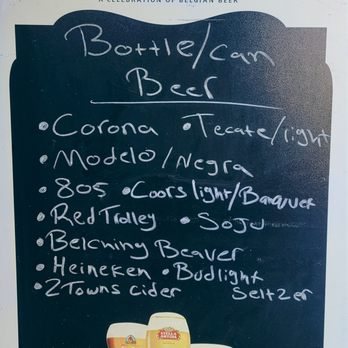 A CELEBRATION OF BELGIAN BEER
Bottle/can
Beer
• Corona • Tecate/right
• Modelo/Negra
• 805 • Coors light/Banquet
• Red Trolley • SoJu
• Belching Beaver
• Heineken • Budlight
• 2 Towns cider Seltzer
STELLA ARTOIS